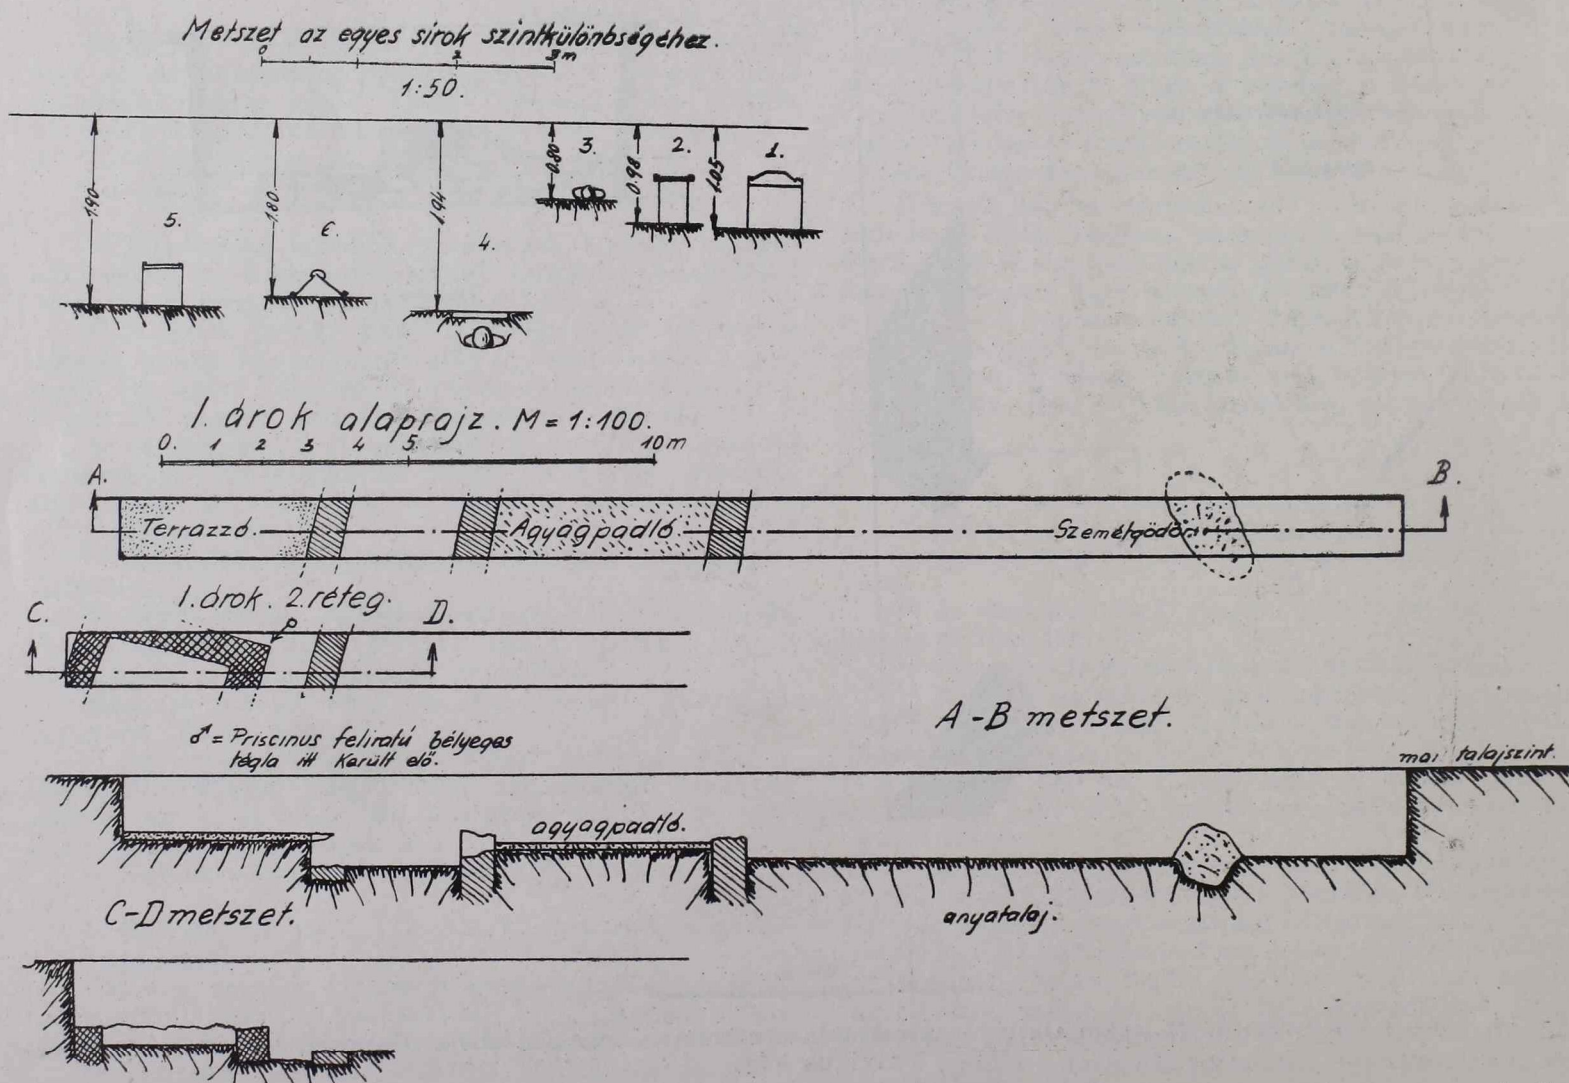 Metszet az egyes sirok szintkülönbségéhez.
0 2 3m
1:50.
1.90 1.80 1.94 0.80 3. 0.98 2. 1.05 1.
5. 6. 4.
I. árok alaprajz. M = 1:100.
0. 1 2 3 4 5. 10m
A. B.
Terrazzó. Agyagpadló. Szemétgödör
I. árok. 2. réteg.
C. D.
♂ = Priscinus feliratú bélyeges
tégla itt került elő.
A-B metszet.
mai talajszint.
agyagpadló.
C-D metszet.
anyatalaj.